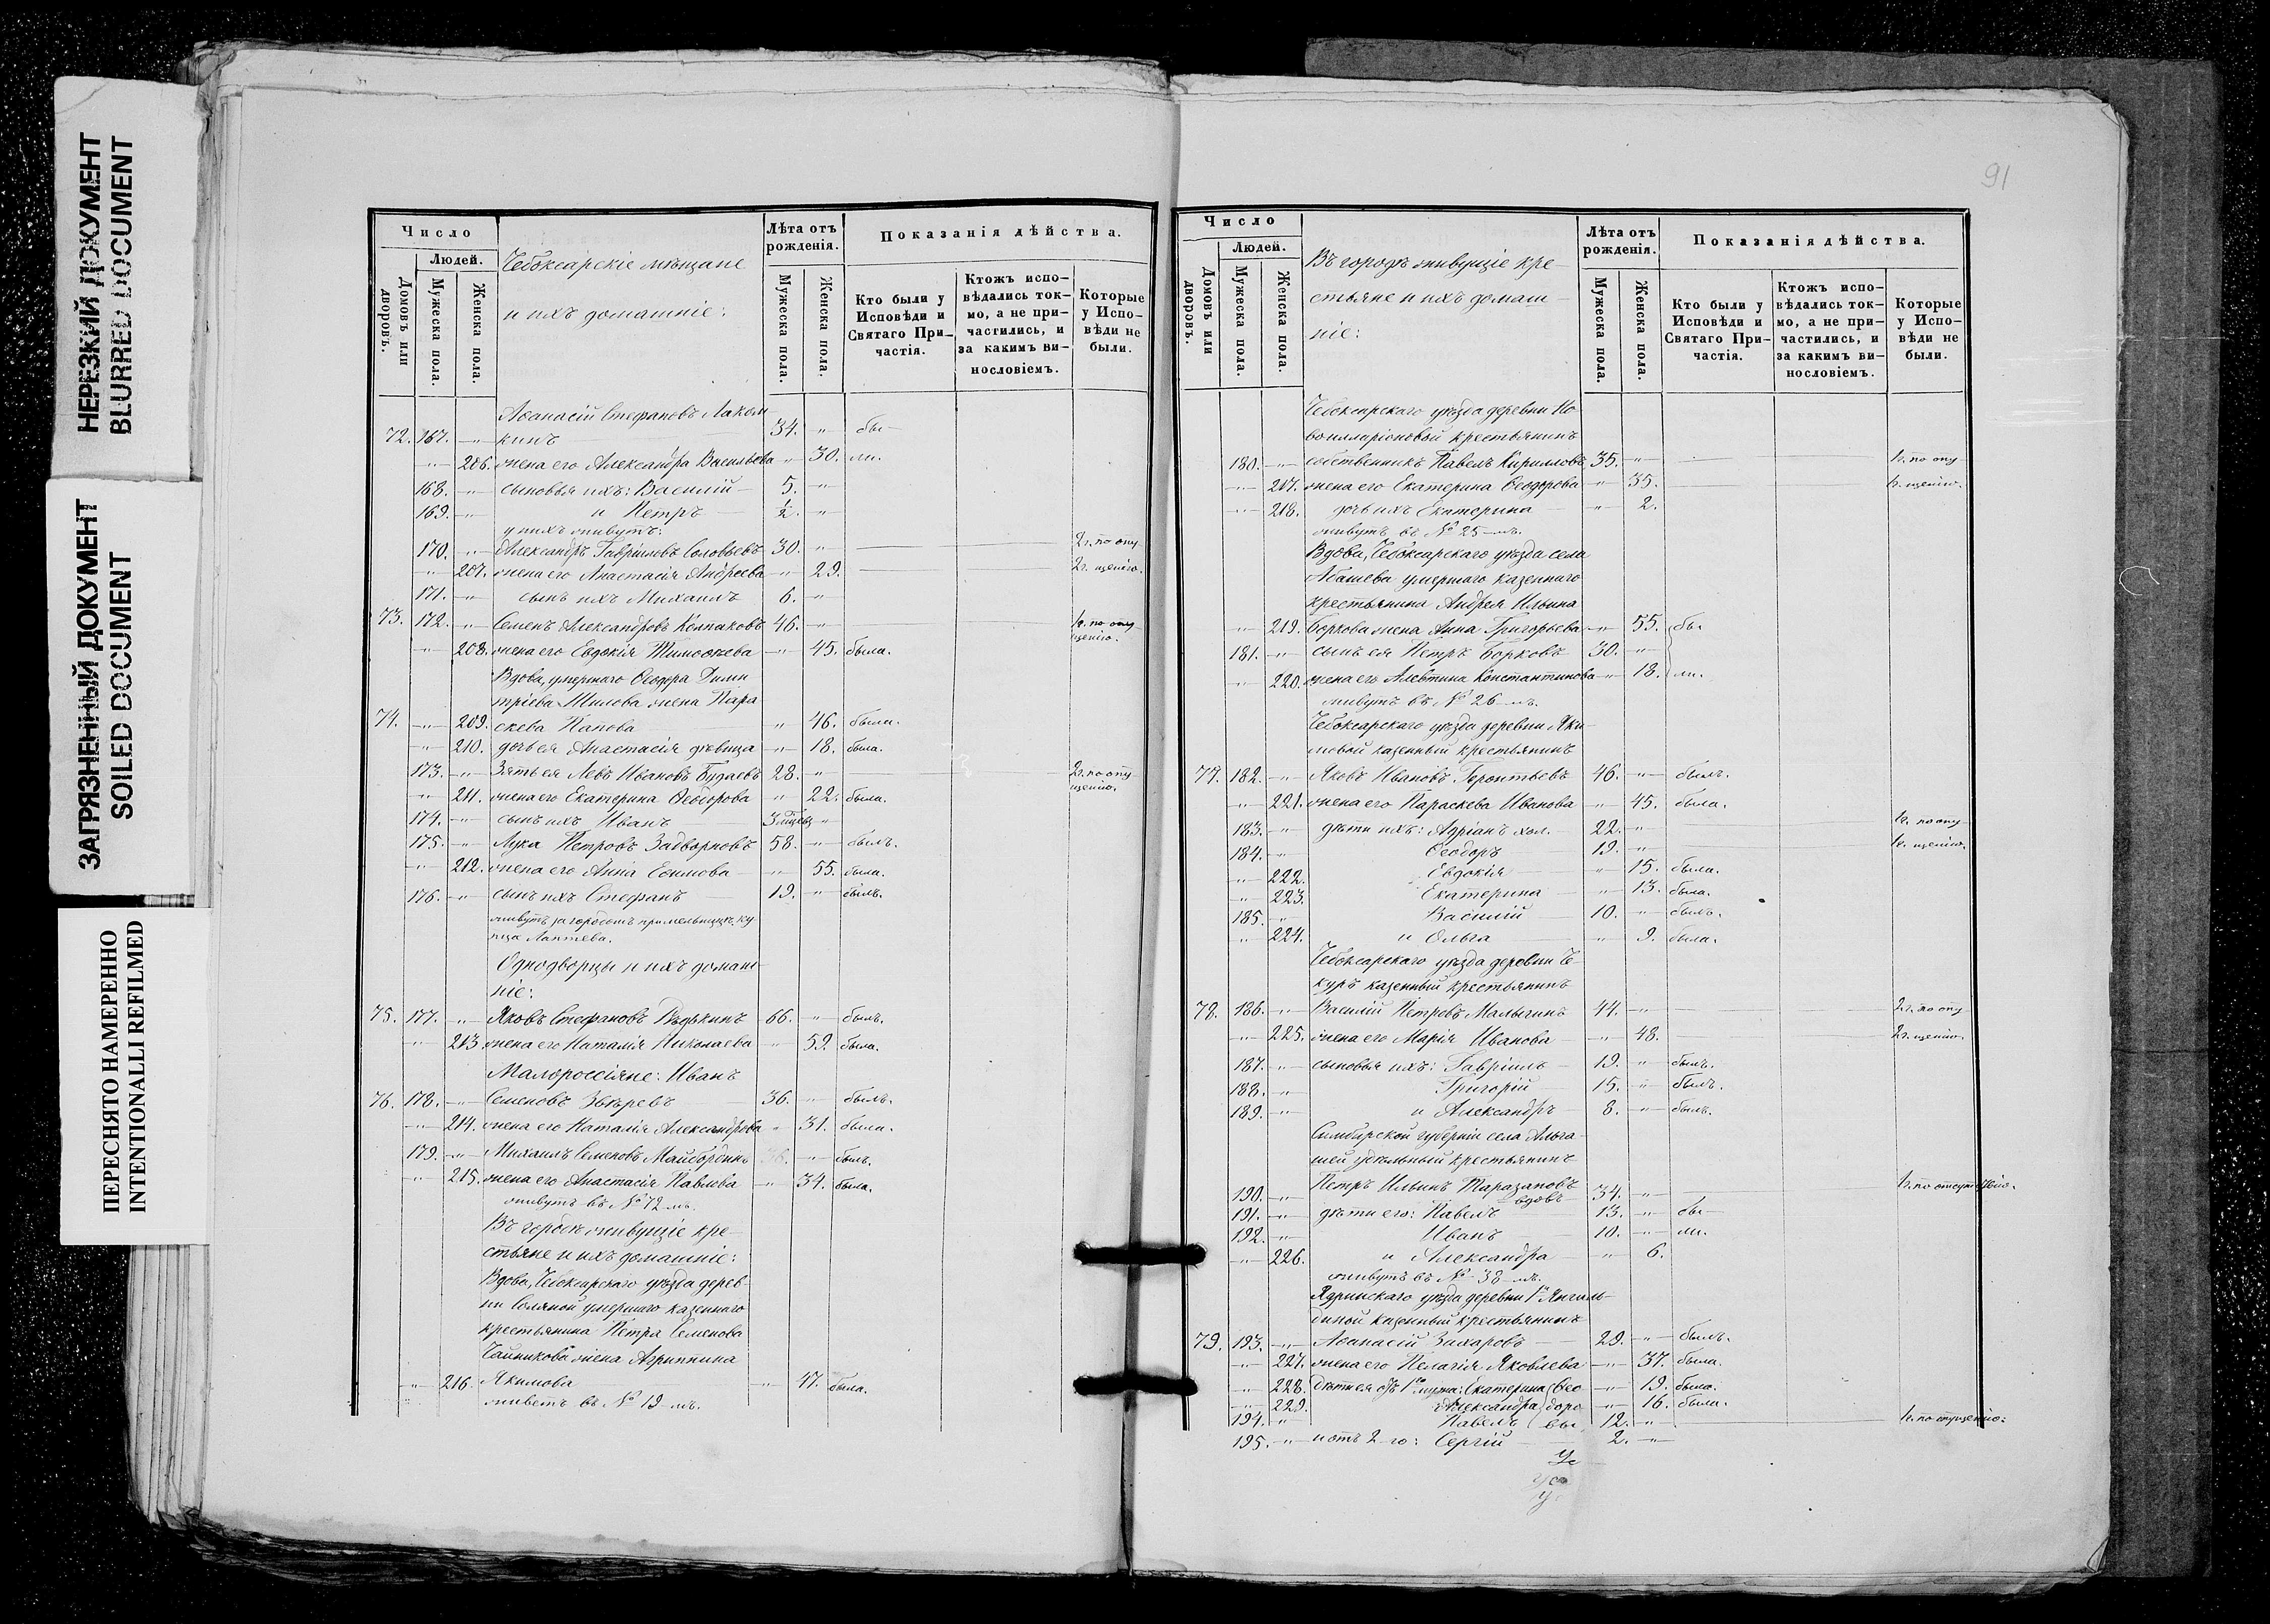 НЕРЕЗКИЙ ДОКУМЕНТ
BLURRED DOCUMENT
ЗАГРЯЗНЕННЫЙ ДОКУМЕНТ
SOILED DOCUMENT
ПЕРЕСНЯТО НАМЕРЕННО
INTENTIONALLI REFILMED
Число
Людей.
Домовъ или дворовъ.
Мужеска пола.
Женска пола.
Чебоксарскіе мѣщане
и ихъ домашніе:
Лѣта отъ рожденія.
Мужеска пола.
Женска пола.
Показанія дѣйства.
Кто были у Исповѣди и Святаго При-частія.
Ктожъ испо-вѣдались ток-мо, а не при-частились, и за какимъ ви-нословіемъ.
Которые у Испо-вѣди не были.
Аѳанасій Стефановъ Лаком
72. 167. -"- кинъ 34. " бы-
-"- 206. жена его Александра Васильева -"- 30. ли.
168. -"- сыновья ихъ: Василій 5. -"-
169. -"- и Петръ 2. -"-
у нихъ живутъ:
170. -"- Александръ Гавріиловъ Соловьевъ 30. " 2г. по опу
-"- 207. жена его Анастасія Андреева -"- 29. 2г. щенію.
171. -"- сынъ ихъ Михаилъ 6. -"-
73. 172. -"- Семенъ Александровъ Колпаковъ 46. -"- 1г. по опу
щенію.
-"- 208. жена его Евдокія Тимоѳеева -"- 45. была.
Вдова, умершаго Ѳеодора Дими
тріева Шилова жена Пара
74. -"- 209. скева Папова " 46. была.
-"- 210. дочь ея Анастасія дѣвица -"- 18. была.
173. -"- Зять ея Левъ Ивановъ Будаевъ 28. " 2г. по опу
щенію.
-"- 211. жена его Екатерина Ѳеодорова " 22. была.
174. -"- сынъ ихъ Иванъ 3 мѣсяц. "
175. -"- Лука Петровъ Задворновъ 58. -"- былъ.
-"- 212. жена его Анна Ефимова -"- 55. была.
176. -"- сынъ ихъ Стефанъ 19. " былъ.
живутъ за городомъ при мельницѣ ку
пца Лаптева.
Однодворцы и ихъ домаш-
ніе:
75. 177. -"- Яковъ Стефановъ Рѣдькинъ 66. " былъ.
-"- 213 жена его Наталія Николаева " 59. была.
Малороссіяне: Иванъ
76. 178. -"- Семеновъ Звѣревъ 36. " былъ.
-"- 214. жена его Наталія Александрова " 31. была.
179. -"- Михаилъ Семеновъ 36. -"- былъ.
-"- 215. жена его Анастасія Павлова " 34. была.
живутъ въ № 72-мъ.
Въ городѣ живущіе кре-
стьяне и ихъ домашніе:
Вдова, Чебоксарскаго уѣзда дерев-
ни Соляной умершаго казеннаго
крестьянина Петра Семенова
Чайникова жена Агриппина
-"- 216. Якимова -"- 47. была.
живетъ въ № 19-мъ.
91
Число
Людей.
Домовъ или дворовъ.
Мужеска пола.
Женска пола.
Въ городѣ живущіе кре-
стьяне и ихъ домаш-
ніе:
Лѣта отъ рожденія.
Мужеска пола.
Женска пола.
Показанія дѣйства.
Кто были у Исповѣди и Святаго При-частія.
Ктожъ испо-вѣдались ток-мо, а не при-частились, и за какимъ ви-нословіемъ.
Которые у Испо-вѣди не были.
Чебоксарскаго уѣзда деревни Но-
воилларіоновой крестьянинъ
180. -"- собственникъ Павелъ Кирилловъ 35. -"- 1г. по опу
-"- 217. жена его Екатерина Ѳеодорова -"- 35. 1г. щенію.
-"- 218. дочь ихъ Екатерина " 2.
живутъ въ № 25-мъ.
Вдова, Чебоксарскаго уѣзда села
Абашева умершаго казеннаго
крестьянина Андрея Ильина
-"- 219. Боркова жена Анна Григорьева -"- 55. бы-
181. -"- сынъ ея Петръ Борковъ 30. -"-
-"- 220. жена его Алевтина Константинова -"- 18. ли.
живутъ въ № 26-мъ.
Чебоксарскаго уѣзда деревни Яки-
мовой казенный крестьянинъ
77. 182. -"- Яковъ Ивановъ Геронтьевъ 46. " былъ.
-"- 221. жена его Параскева Иванова " 45. была.
183. -"- дѣти ихъ: Адріанъ хол. 22. " 1г. по опу
184. -"- Ѳеодоръ 19. -"- 1г. щенію.
-"- 222. Евдокія " 15. была.
-"- 223. Екатерина -"- 13. была.
185. -"- Василій 10. -"- былъ.
-"- 224. и Ольга " 9. была.
Чебоксарскаго уѣзда деревни Че-
куръ казенный крестьянинъ
78. 186. -"- Василій Петровъ Малыгинъ 44. -"- 2г. по опу
-"- 225. жена его Марія Иванова -"- 48. 2г. щенію.
187. -"- сыновья ихъ: Гавріилъ 19. " былъ.
188. -"- Григорій 15. " былъ.
189. -"- и Александръ 8. -"- былъ.
Симбирской губерніи села Альга-
шей удѣльный крестьянинъ
190. -"- Петръ Ильинъ Таразановъ вдовъ 34. -"- 1г. по опущенію.
191. -"- дѣти его: Павелъ 13. -"- бы-
192. -"- Иванъ 10. -"- ли.
-"- 226. и Александра -"- 6.
живутъ въ № 38-мъ.
Ядринскаго уѣзда деревни 1й Янгиль-
диной казенный крестьянинъ
79. 193. -"- Аѳанасій Захаровъ 29. -"- былъ.
-"- 227. жена его Пелагія Яковлева -"- 37. была.
-"- 228. Дѣти ея отъ 1го мужа: Екатерина Ѳео- -"- 19. была.
-"- 229. Александра доро- -"- 16. была.
194. -"- Павелъ вы 12. -"- 1г. по опущенію.
195. -"- и отъ 2-го: Сергій 2. -"-